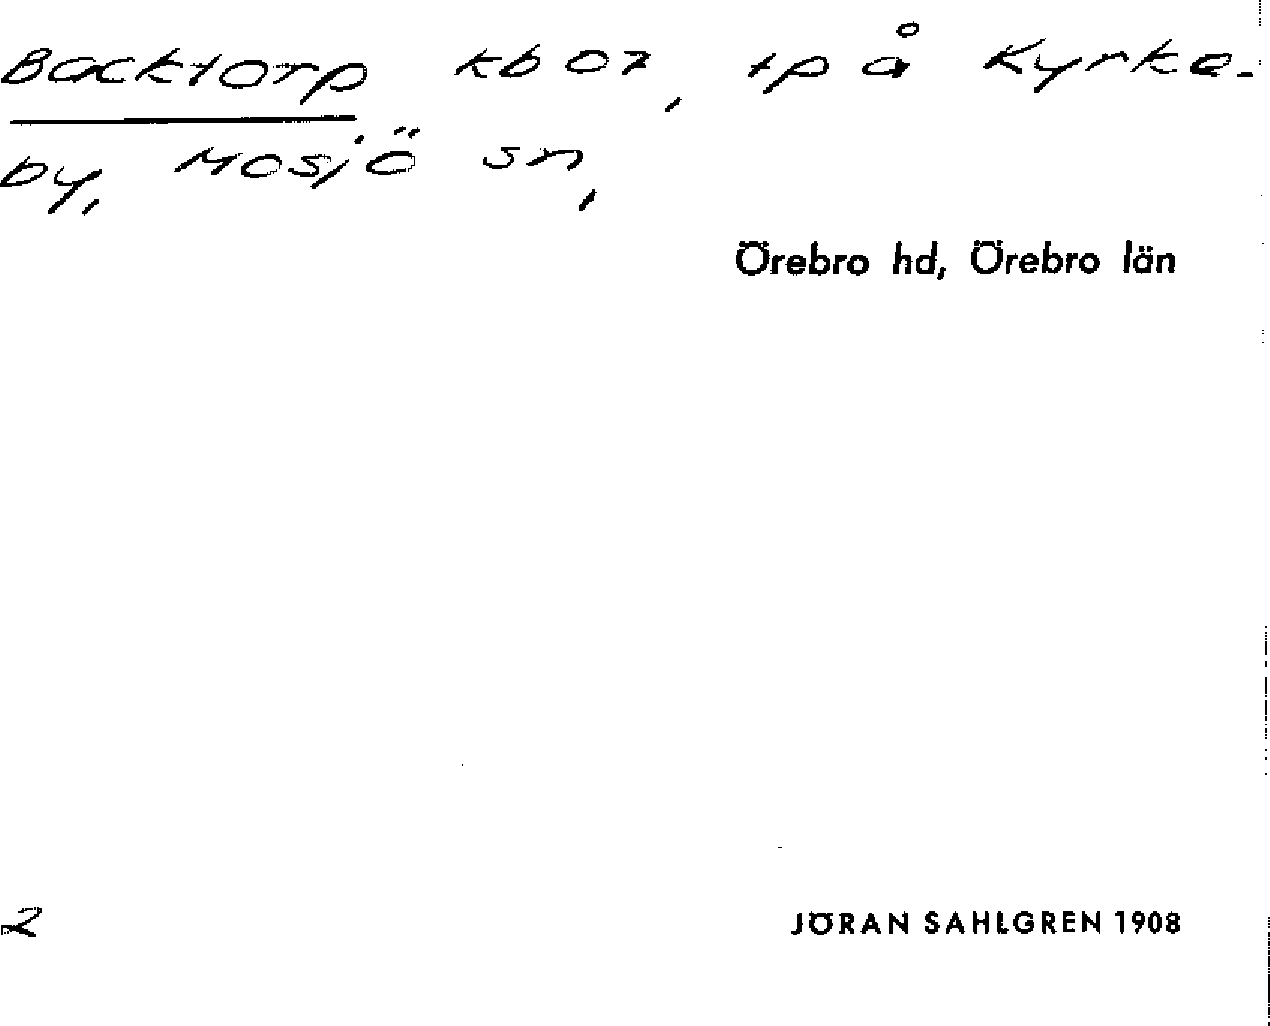 Backtorp kb 07, tp å Kyrke-
by, Mosjö sn,
Örebro hd, Örebro län
2
JÖRAN SAHLGREN 1908